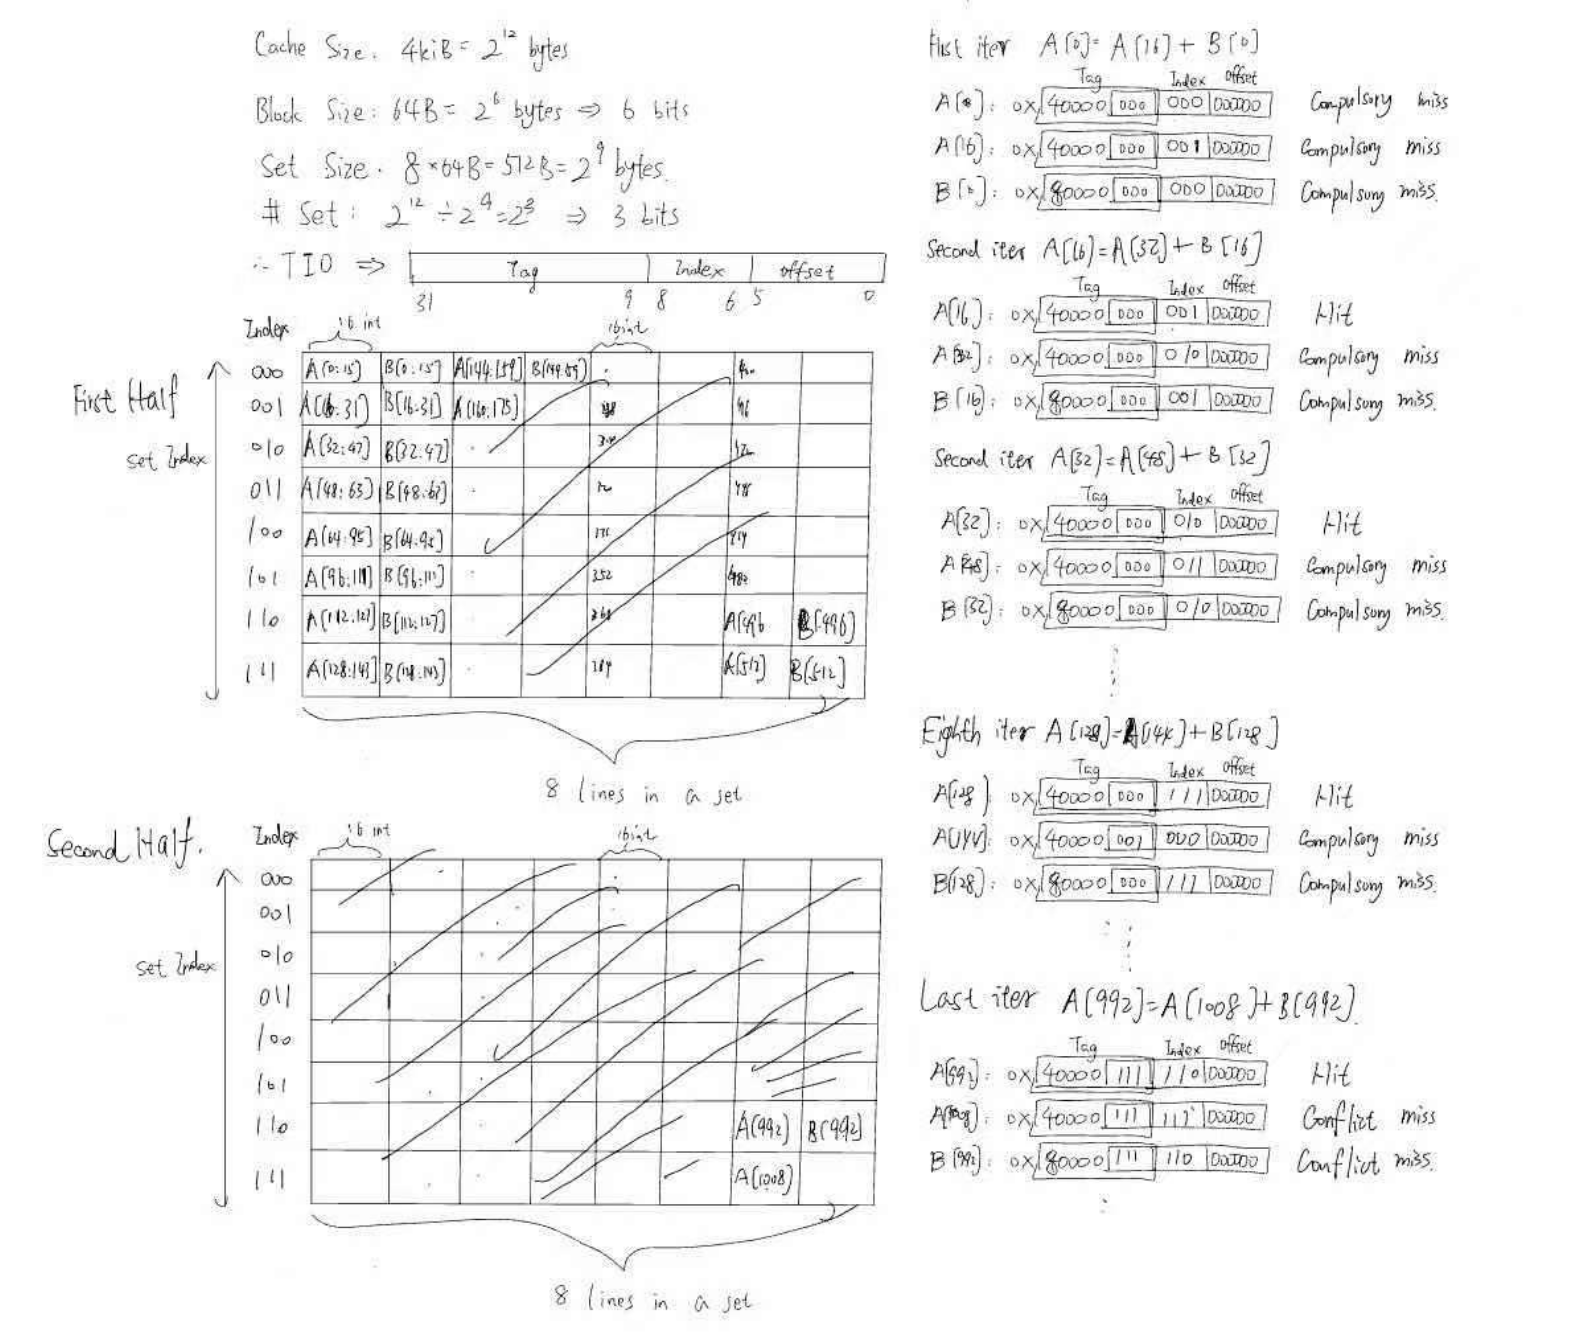 Cache Size. 4kiB = 2^12 bytes
Block Size: 64B = 2^6 bytes ⇒ 6 bits
Set Size. 8*64B = 512B = 2^9 bytes.
# Set: 2^12 ÷ 2^9 = 2^3 ⇒ 3 bits
∴ TIO ⇒ Tag Index offset
31 9 8 6 5 0
First Half
set Index
Index 16 int 16int
000 A[0:15] B[0:15] A[144:159]
001 A[16:31] B[16:31] A[160:175] 496
010 A[32:47] B[32:47]
011 A[48:63] B[48:63]
100 A[64:95] B[64:95]
101 A[96:111] B[96:111] 352
110 A[112:127] B[112:127] 368 A[496 B[496]
111 A[128:143] B[128:143] 384 A[512] B[512]
8 lines in a set
Second Half.
set Index
Index 16 int 16int
000
001
010
011
100
101
110 A[992] B[992]
111 A[1008]
8 lines in a set
First iter A[0] = A[16] + B[0]
Tag Index offset
A[0]: 0x 40000 000 000 000000 Compulsory miss
A[16]: 0x 40000 000 001 000000 Compulsory miss
B[0]: 0x 80000 000 000 000000 Compulsory miss.
Second iter A[16] = A[32] + B[16]
Tag Index offset
A[16]: 0x 40000 000 001 000000 Hit
A[32]: 0x 40000 000 010 000000 Compulsory miss
B[16]: 0x 80000 000 001 000000 Compulsory miss.
Second iter A[32] = A[48] + B[32]
Tag Index offset
A[32]: 0x 40000 000 010 000000 Hit
A[48]: 0x 40000 000 011 000000 Compulsory miss
B[32]: 0x 80000 000 010 000000 Compulsory miss.
Eighth iter A[128] = A[144] + B[128]
Tag Index offset
A[128]: 0x 40000 000 111 000000 Hit
A[144]: 0x 40000 001 000 000000 Compulsory miss
B[128]: 0x 80000 000 111 000000 Compulsory miss.
Last iter A[992] = A[1008] + B[992].
Tag Index offset
A[992]: 0x 40000 111 110 000000 Hit
A[1008]: 0x 40000 111 111 000000 Conflict miss
B[992]: 0x 80000 111 110 000000 Conflict miss.